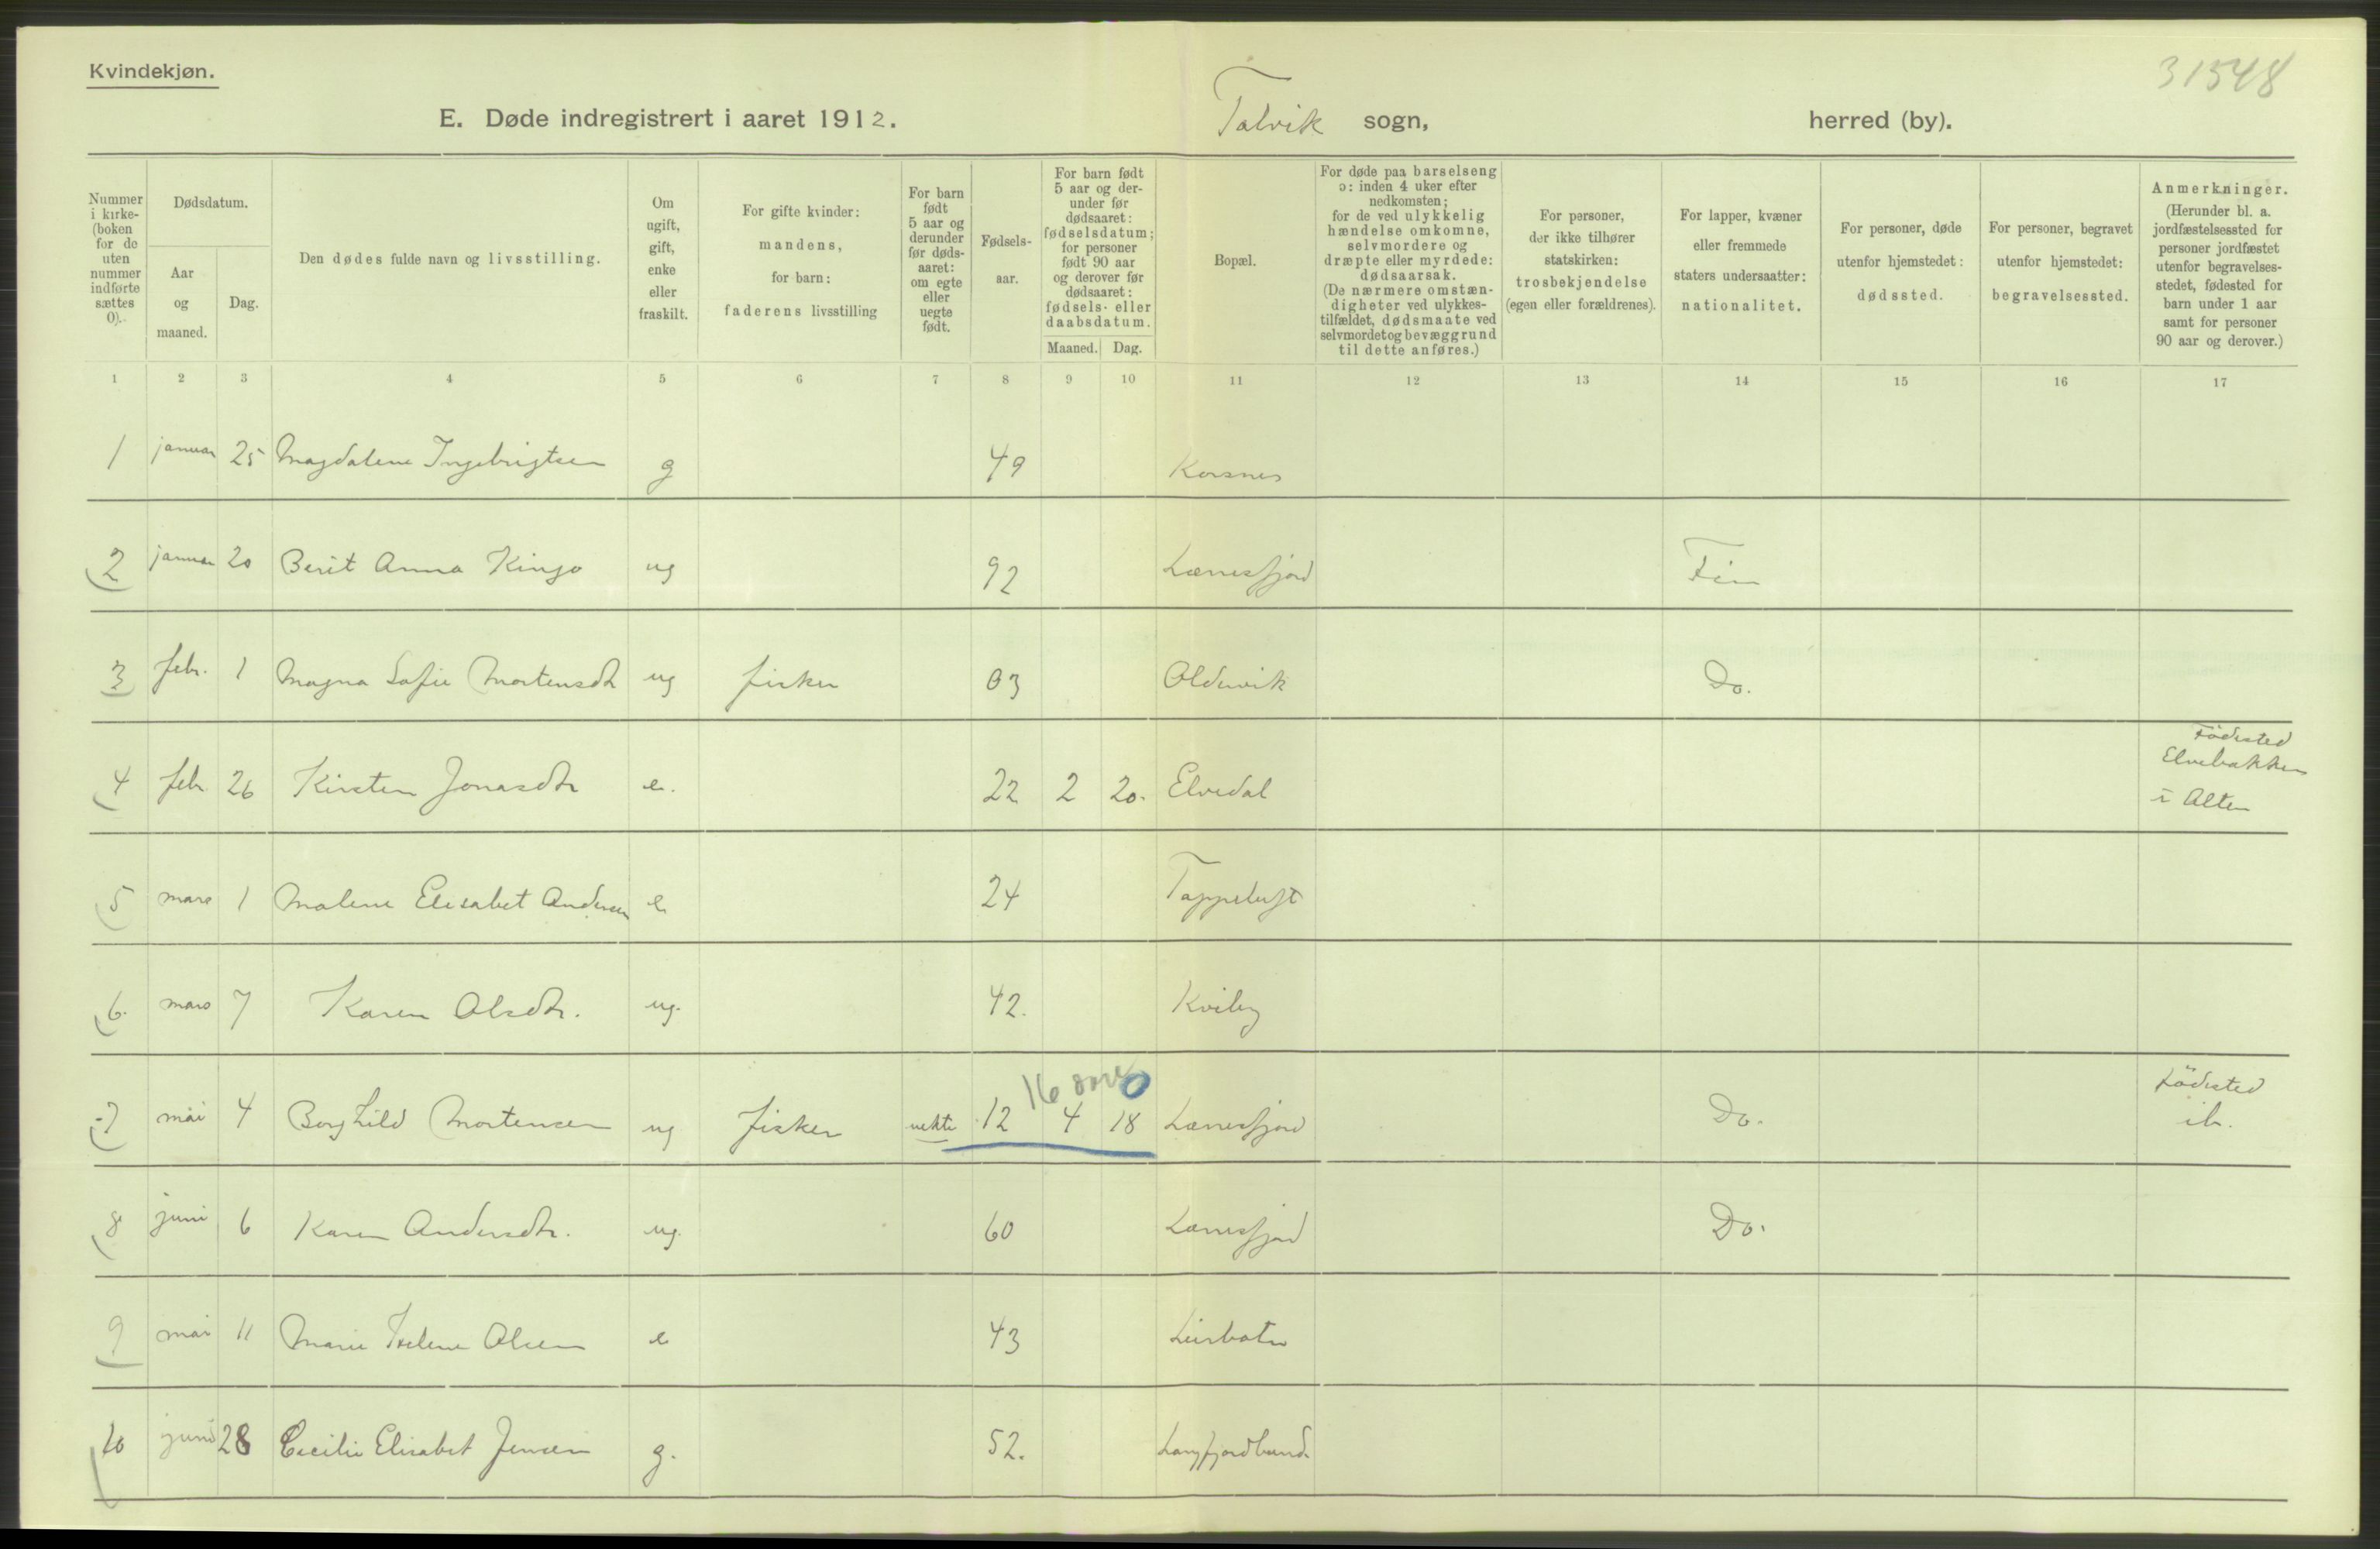 Kvindekjøn.
31548
E. Døde indregistrert i aaret 1912.
Talvik sogn,
herred (by).
Nummer i kirke- (boken for de uten nummer indførte sættes 0).
Dødsdatum.
Aar og maaned.
Dag.
Den dødes fulde navn og livsstilling.
Om ugift, gift, enke eller fraskilt.
For gifte kvinder: mandens, for barn: faderens livsstilling
For barn født 5 aar og derunder før døds- aaret: om egte eller uegte født.
Fødsels- aar.
For barn født 5 aar og der- under før dødsaaret: fødselsdatum; for personer født 90 aar og derover før dødsaaret: fødsels- eller daabsdatum.
Maaned. Dag.
Bopæl.
For døde paa barselseng ɔ: inden 4 uker efter nedkomsten; for de ved ulykkelig hændelse omkomne, selvmordere og dræpte eller myrdede: dødsaarsak. (De nærmere omstæn- digheter ved ulykkes- tilfældet, dødsmaate ved selvmordet og bevæggrund til dette anføres.)
For personer, der ikke tilhører statskirken: trosbekjendelse (egen eller forældrenes).
For lapper, kvæner eller fremmede staters undersaatter: nationalitet.
For personer, døde utenfor hjemstedet: dødssted.
For personer, begravet utenfor hjemstedet: begravelsessted.
Anmerkninger. (Herunder bl. a. jordfæstelsessted for personer jordfæstet utenfor begravelses- stedet, fødested for barn under 1 aar samt for personer 90 aar og derover.)
1 2 3 4 5 6 7 8 9 10 11 12 13 14 15 16 17
1 januar 25 Magdalene Ingebrigtsen g 49 Korsnes
2 januar 20 Berit Anna Kingo ug 92 Lærresfjord Fin
3 febr. 1 Magna Sofie Mortensdtr ug fisker 03 Oldervik Do.
4 febr. 26 Kirsten Jonasdtr e. 22 2 20. Elvedal Födested Elvebakken i Alten
5 mars 1 Malene Elisabet Andersen e 24 Tappeluft
6. mars 7 Karen Olsdtr. ug. 42. Kviby
16 dage 0
7 mai 4 Borghild Mortensen ug fisker uekte 12 4 18 Lærresfjord Do. Födested ib.
8 juni 6 Karen Andersdtr. ug. 60 Lærresfjord Do.
9 mai 11 Marie Helene Olsen e 43 Leirbotn
10 juni 28 Cecilie Elisabet Jensen g. 52. Langfjordbund.